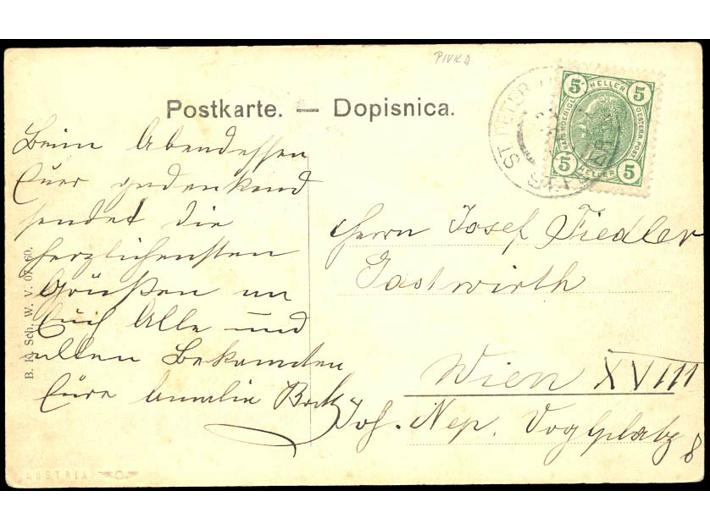 PIVKA
Postkarte. — Dopisnica.
ST. PETER
5 HELLER 5
5 HELLER 5
Beim Abendessen
Euer gedenkend
sendet die
herzlichensten
Grüßen an
Euch Alle und
allen Bekannten
Eure Amalie Bock
Herrn Josef Fiedler
Gastwirth
Wien XVIII
Joh. Nep. Voglplatz 8
B. K. Sch. W. V. 07. 60.
AUSTRIA